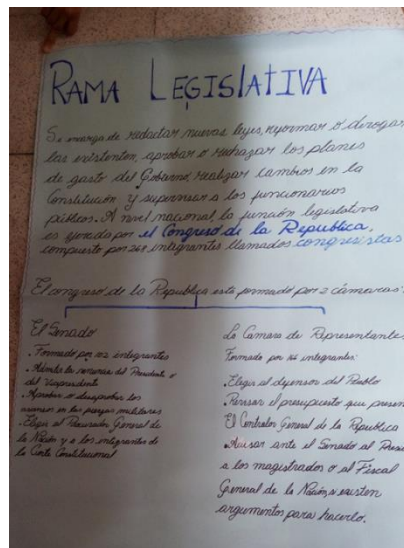 RAMA LEGISlATIVA
Se encarga de redactar nuevas leyes, reformar o derogar
las existentes, aprobar o rechazar los planes
de gasto del Gobierno, realizar cambios en la
Constitución y supervisar a los funcionarios
públicos. A nivel nacional, la función legislativa
es ejercida por el Congreso de la Republica,
compuesto por 268 integrantes llamados congresistas
El congreso de la Republica esta formado por 2 cámaras:
El Senado
. Formado por 102 integrantes
. Atiende la renuncia del Presidente o
del Vicepresidente
. Aprobar o desaprobar los
ascensos en las fuerzas militares
. Elegir al Procurador General de
la Nación y a los integrantes de
la Corte Constitucional
La Camara de Representantes
Formada por 166 integrantes:
. Elegir al defensor del Pueblo
Revisar el presupuesto que
El Contralor General de la Republica
. Acusar ante el Senado al
a los magistrados o al Fiscal
General de la Nación si existen
argumentos para hacerlo.